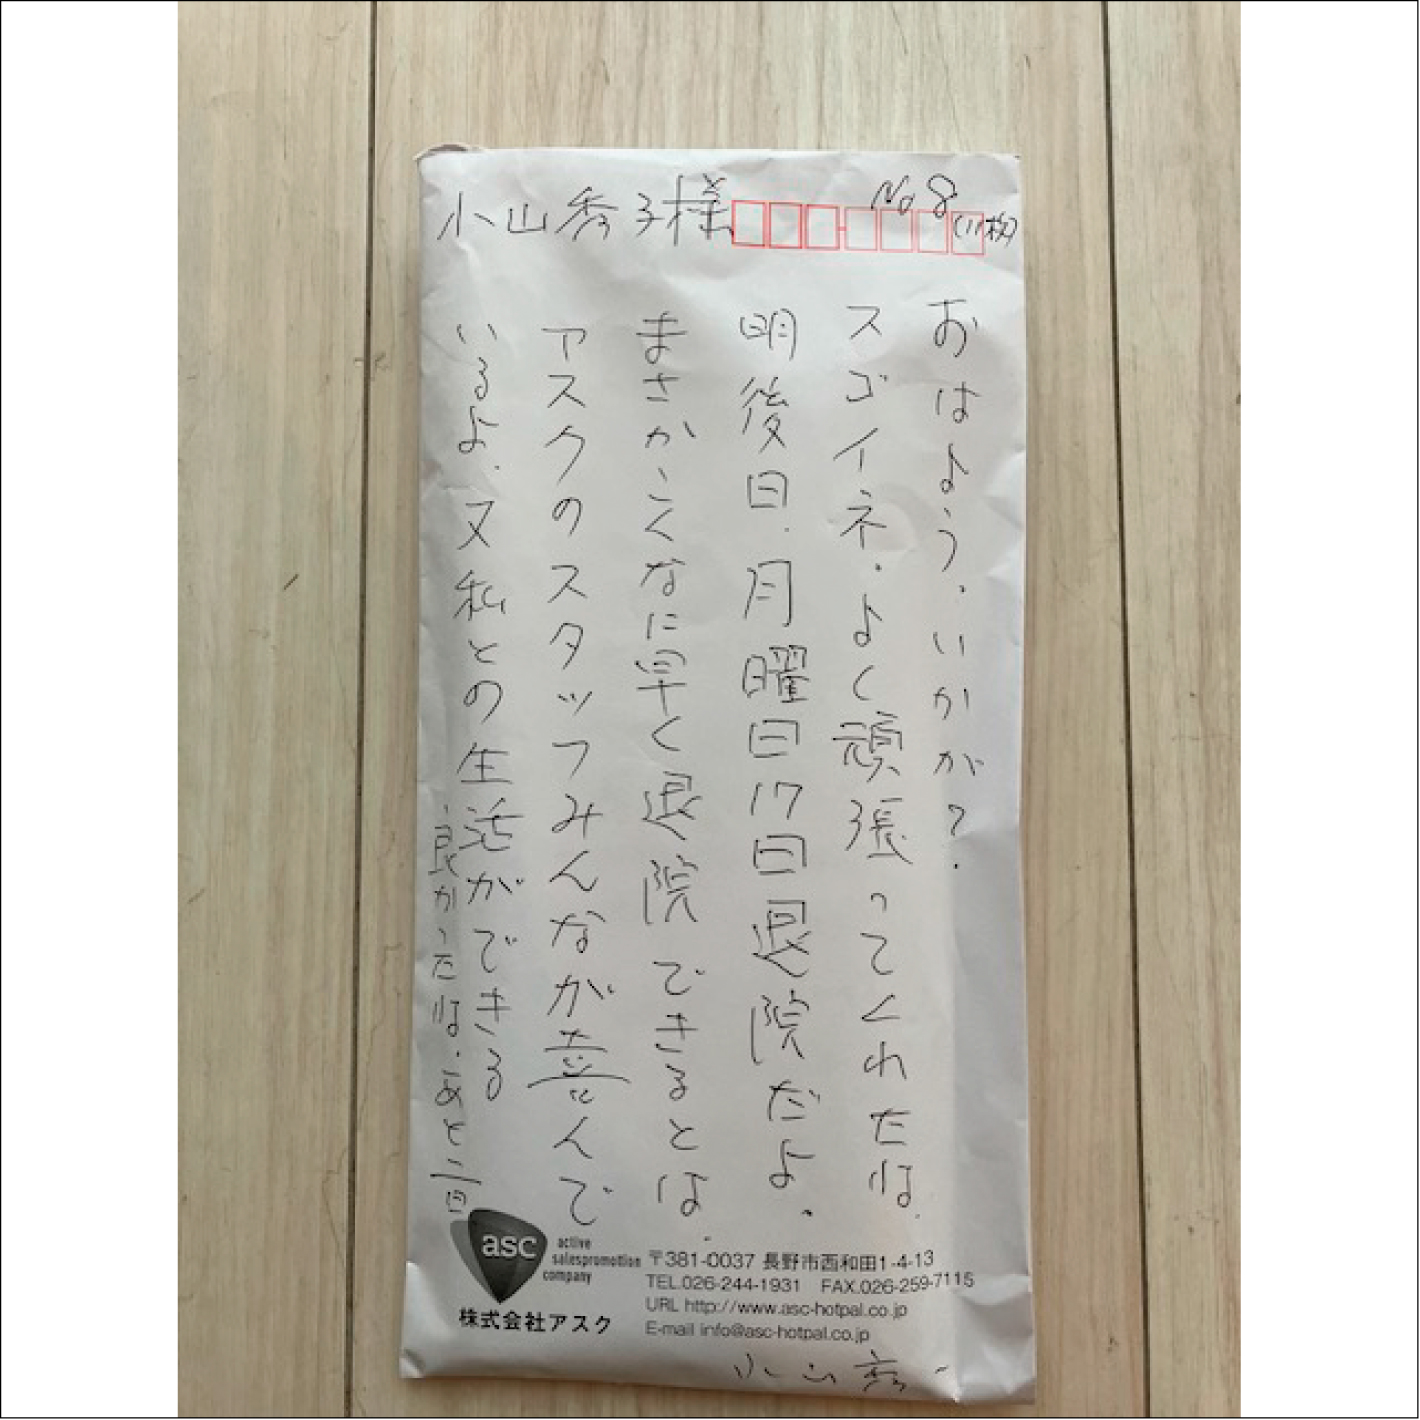 小山秀子様
No 8
(11枚)
おはよう。いかが?.
スゴイネ.よく頑張ってくれたね.
明後日.月曜日17日退院だよ.
まさかこんなに早く退院できるとは.
アスクのスタッフみんなが喜んで
いるよ.又私との生活ができる
良かったね.あと二日
asc
active
salespromotion
company
株式会社アスク
〒381-0037 長野市西和田1-4-13
TEL.026-244-1931 FAX.026-259-7115
URL http://www.asc-hotpal.co.jp
E-mail info@asc-hotpal.co.jp
小山秀一